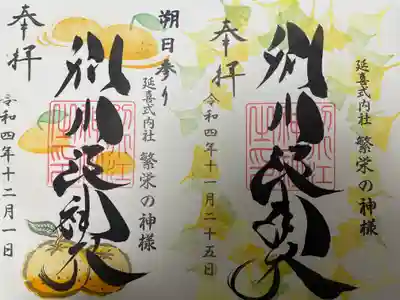 延喜式内社 繁栄の神様
別小江神社
奉拝
令和四年十一月二十五日
朔日参り
延喜式内社 繁栄の神様
別小江神社
奉拝
令和四年十二月一日